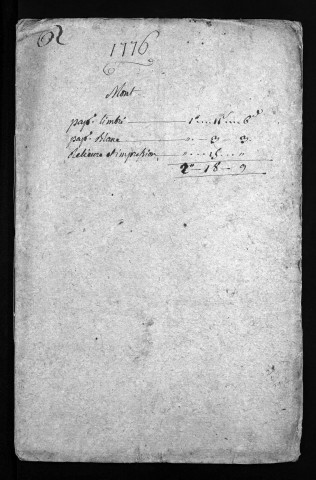 1776
Mont
pap.r timbré 1# 11s 6d
pap.r Blanc " 3 3
Relieure et impression " 15 "
2" 18 9